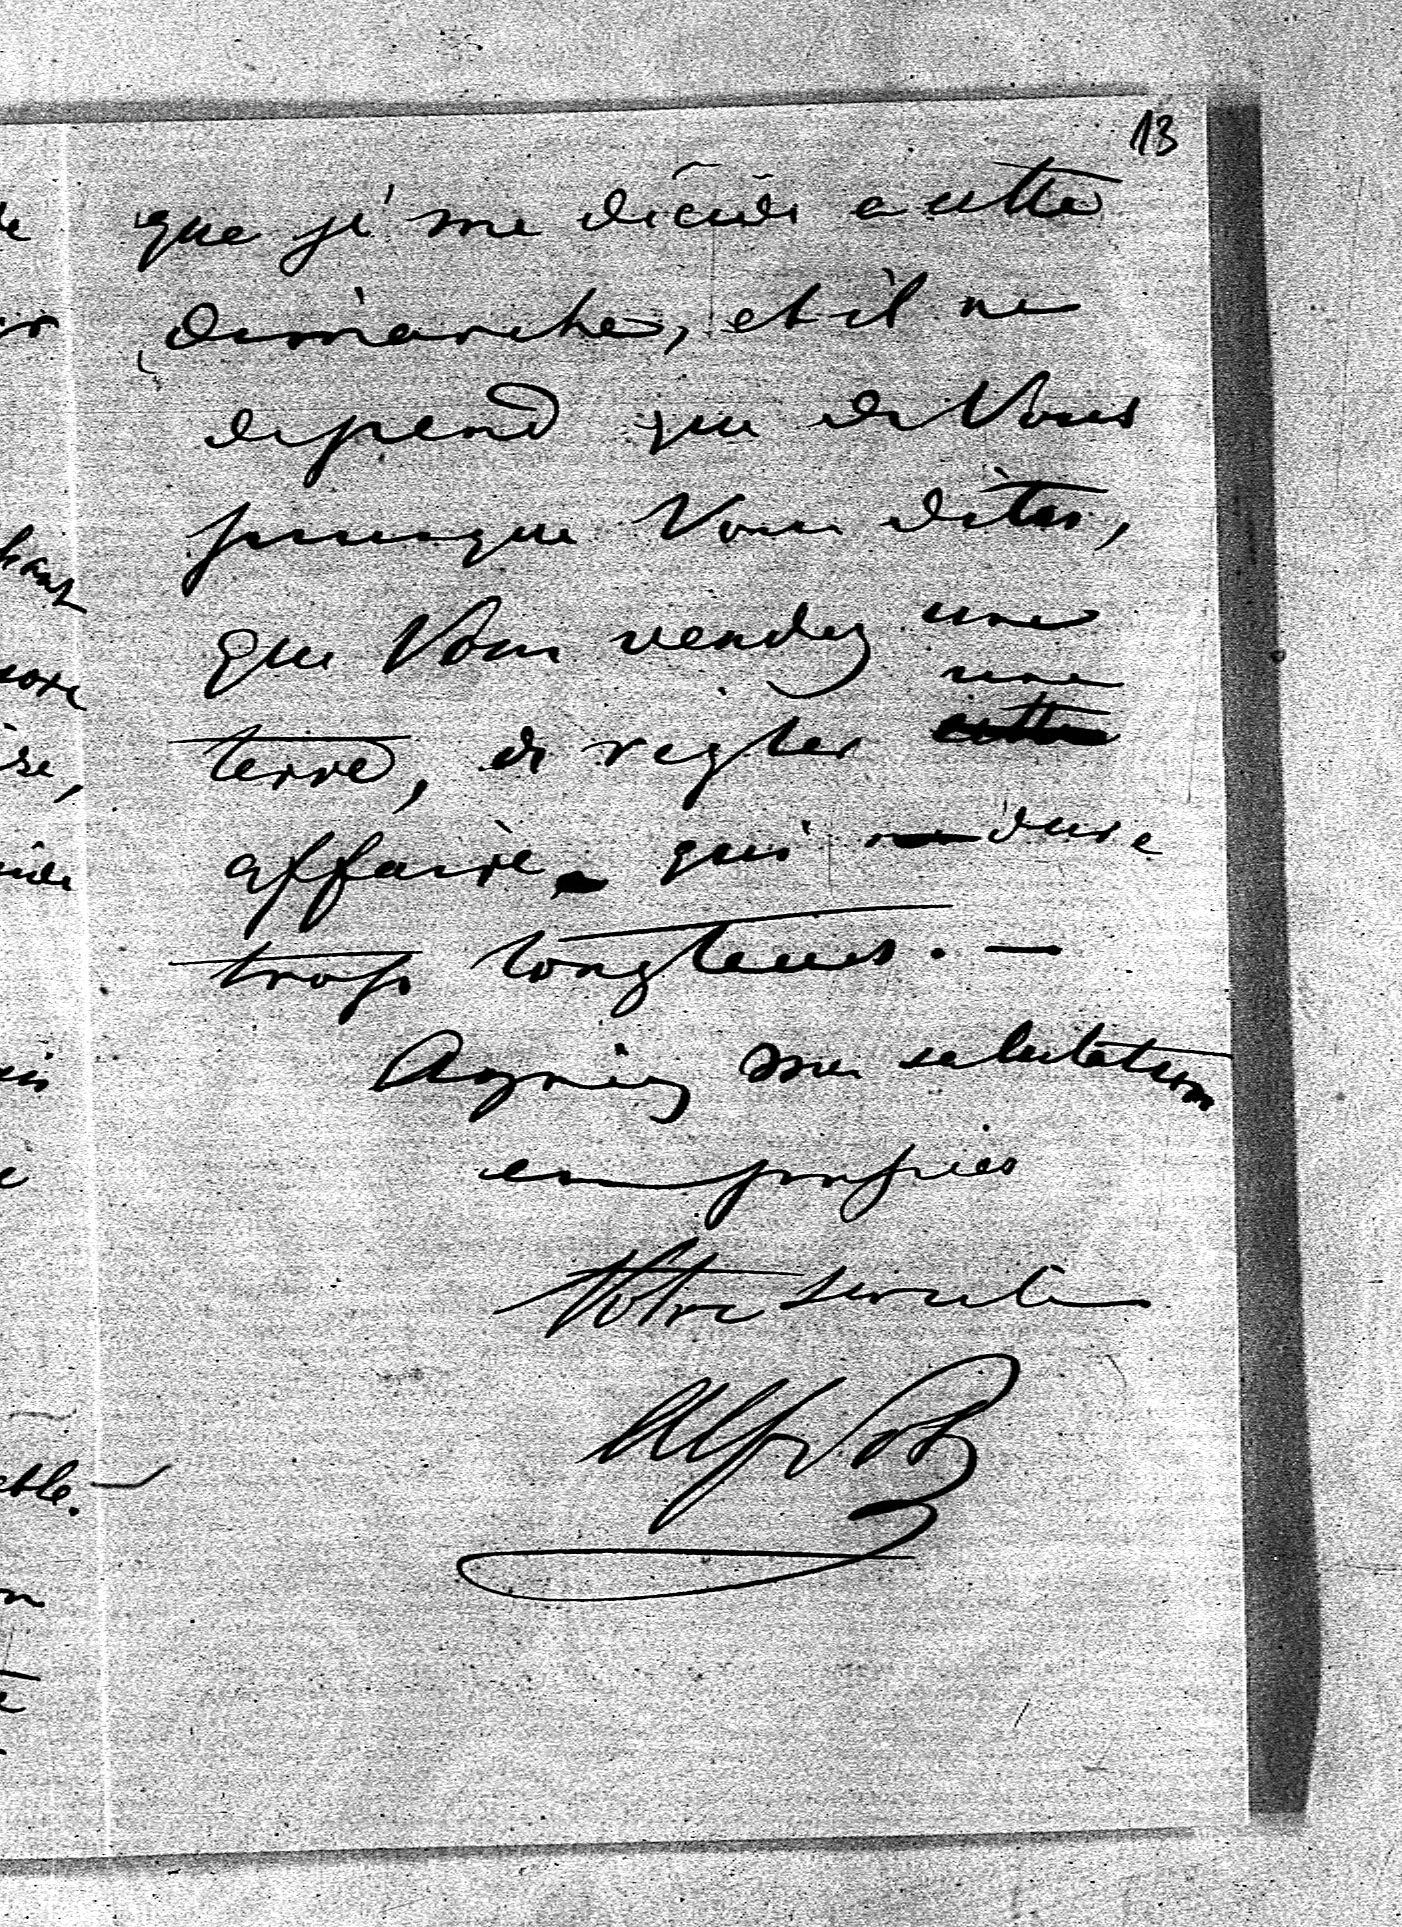 13
que je me décide a cette
démarche, et il ne
depend que de Vous
puisque Vous dites,
que Vous vendez une
terre, de regler une
affaire qui dure
trop longtems. —
Agréez mes salutations
empressées
Votre